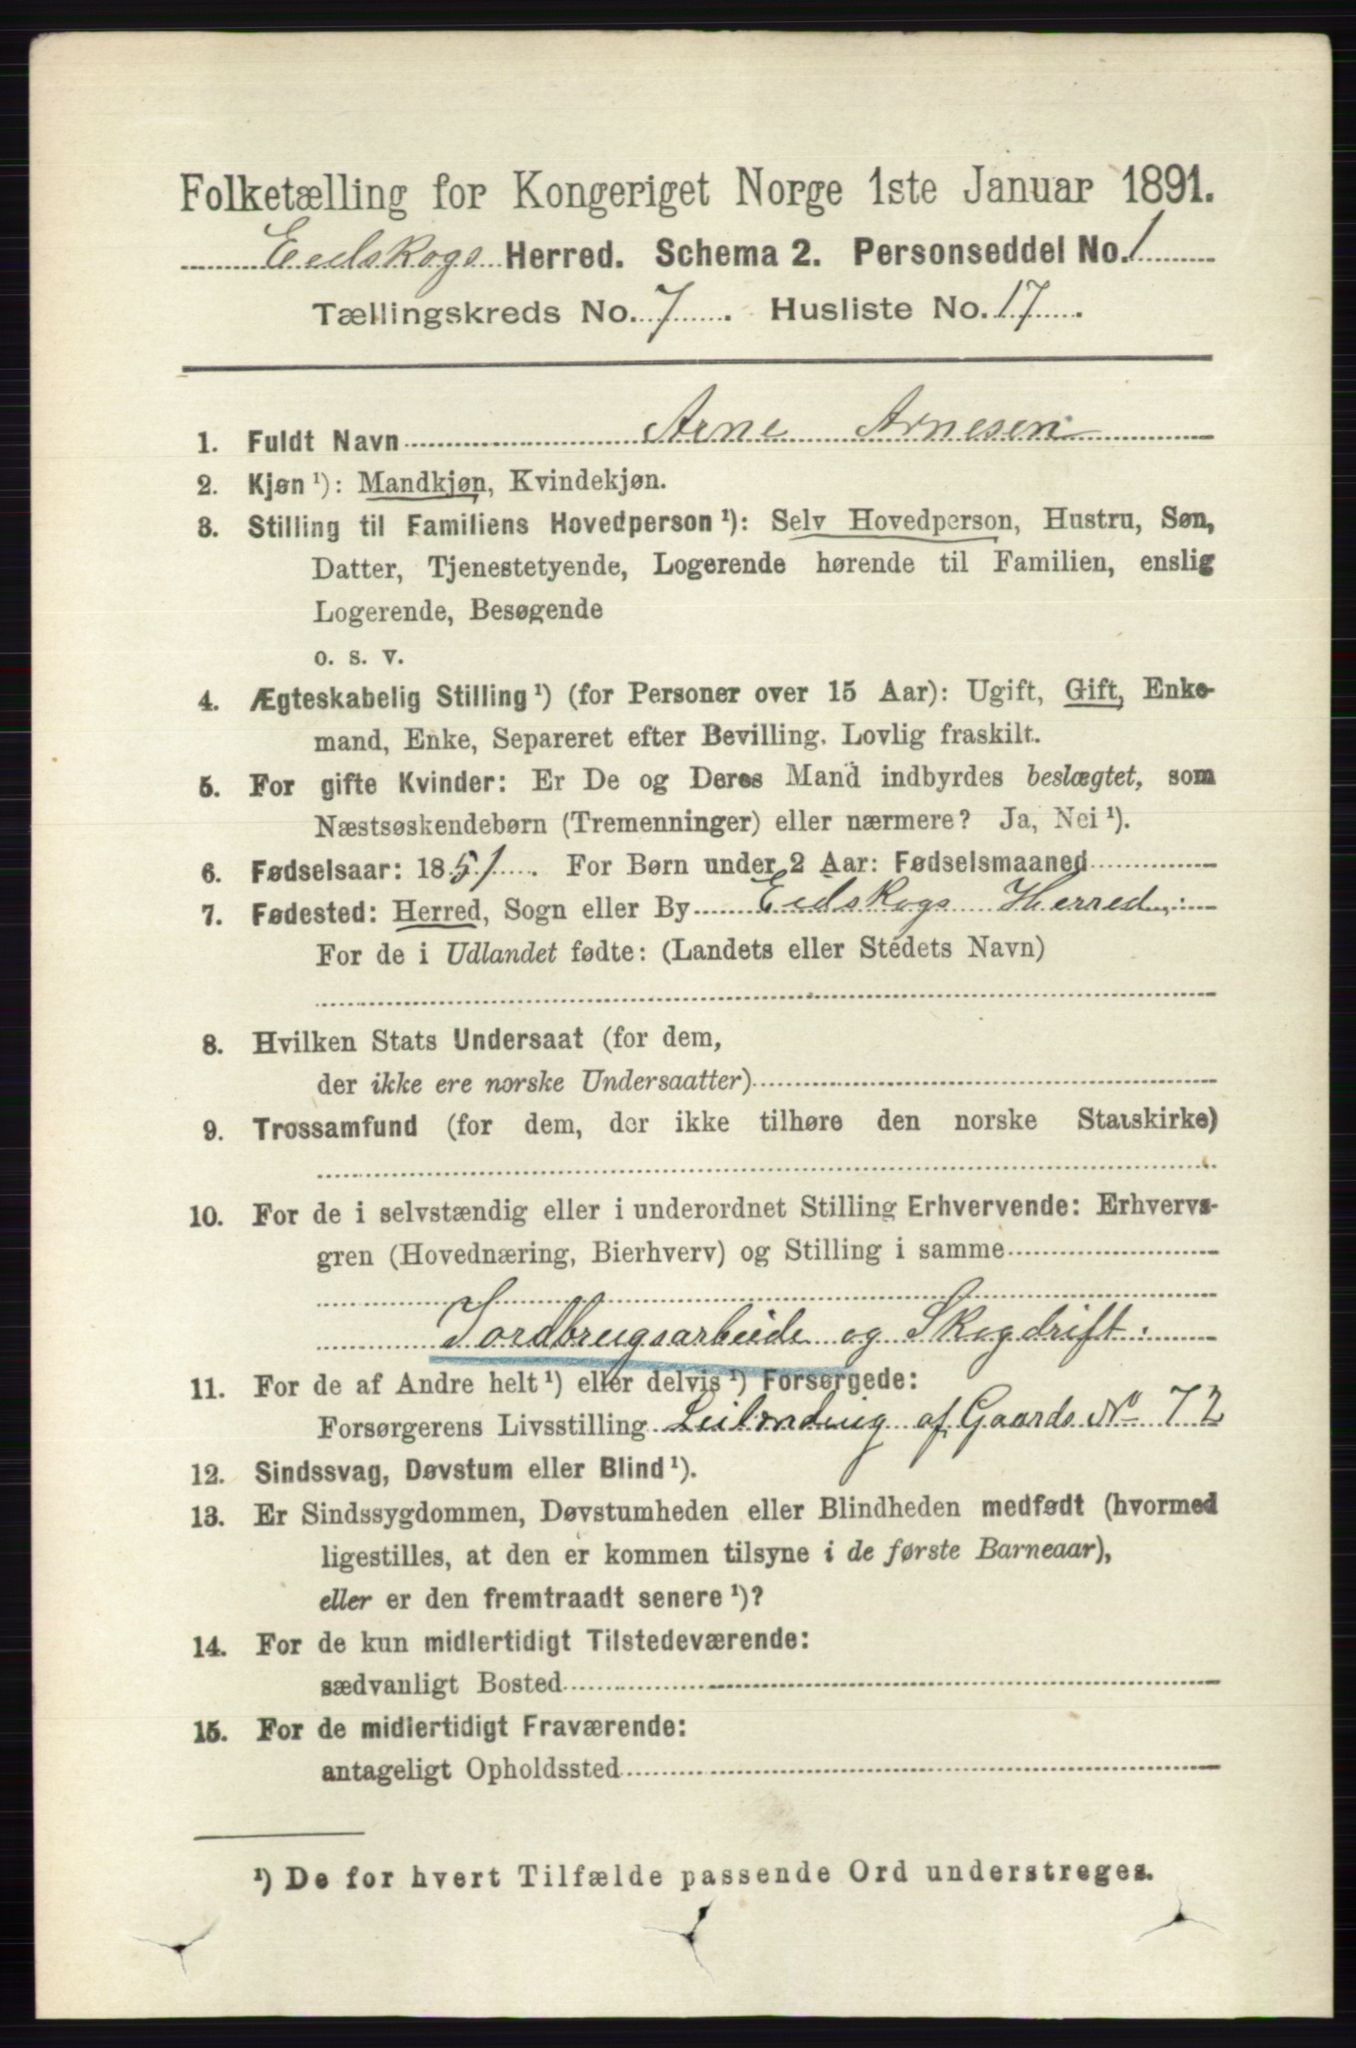 Folketælling for Kongeriget Norge 1ste Januar 1891.
Eidskogs Herred. Schema 2. Personseddel No. 1
Tællingskreds No. 7. Husliste No. 17.
1. Fuldt Navn Arne Arnesen
2. Kjøn ¹): Mandkjøn, Kvindekjøn.
3. Stilling til Familiens Hovedperson ¹): Selv Hovedperson, Hustru, Søn,
Datter, Tjenestetyende, Logerende hørende til Familien, enslig
Logerende, Besøgende
o. s. v.
4. Ægteskabelig Stilling ¹) (for Personer over 15 Aar): Ugift, Gift, Enke-
mand, Enke, Separeret efter Bevilling. Lovlig fraskilt.
5. For gifte Kvinder: Er De og Deres Mand indbyrdes beslægtet, som
Næstsøskendebørn (Tremenninger) eller nærmere? Ja, Nei ¹).
6. Fødselsaar: 1851. For Børn under 2 Aar: Fødselsmaaned
7. Fødested: Herred, Sogn eller By Eidskogs Herred.
For de i Udlandet fødte: (Landets eller Stedets Navn)
8. Hvilken Stats Undersaat (for dem,
der ikke ere norske Undersaatter)
9. Trossamfund (for dem, der ikke tilhøre den norske Statskirke)
10. For de i selvstændig eller i underordnet Stilling Erhvervende: Erhvervs-
gren (Hovednæring, Bierhverv) og Stilling i samme
Jordbrugsarbeide og Skogdrift.
11. For de af Andre helt ¹) eller delvis ¹) Forsørgede:
Forsørgerens Livsstilling Leilænding af Gaards No 72
12. Sindssvag, Døvstum eller Blind ¹).
13. Er Sindssygdommen, Døvstumheden eller Blindheden medfødt (hvormed
ligestilles, at den er kommen tilsyne i de første Barneaar),
eller er den fremtraadt senere ¹)?
14. For de kun midlertidigt Tilstedeværende:
sædvanligt Bosted
15. For de midlertidigt Fraværende:
antageligt Opholdssted
¹) De for hvert Tilfælde passende Ord understreges.